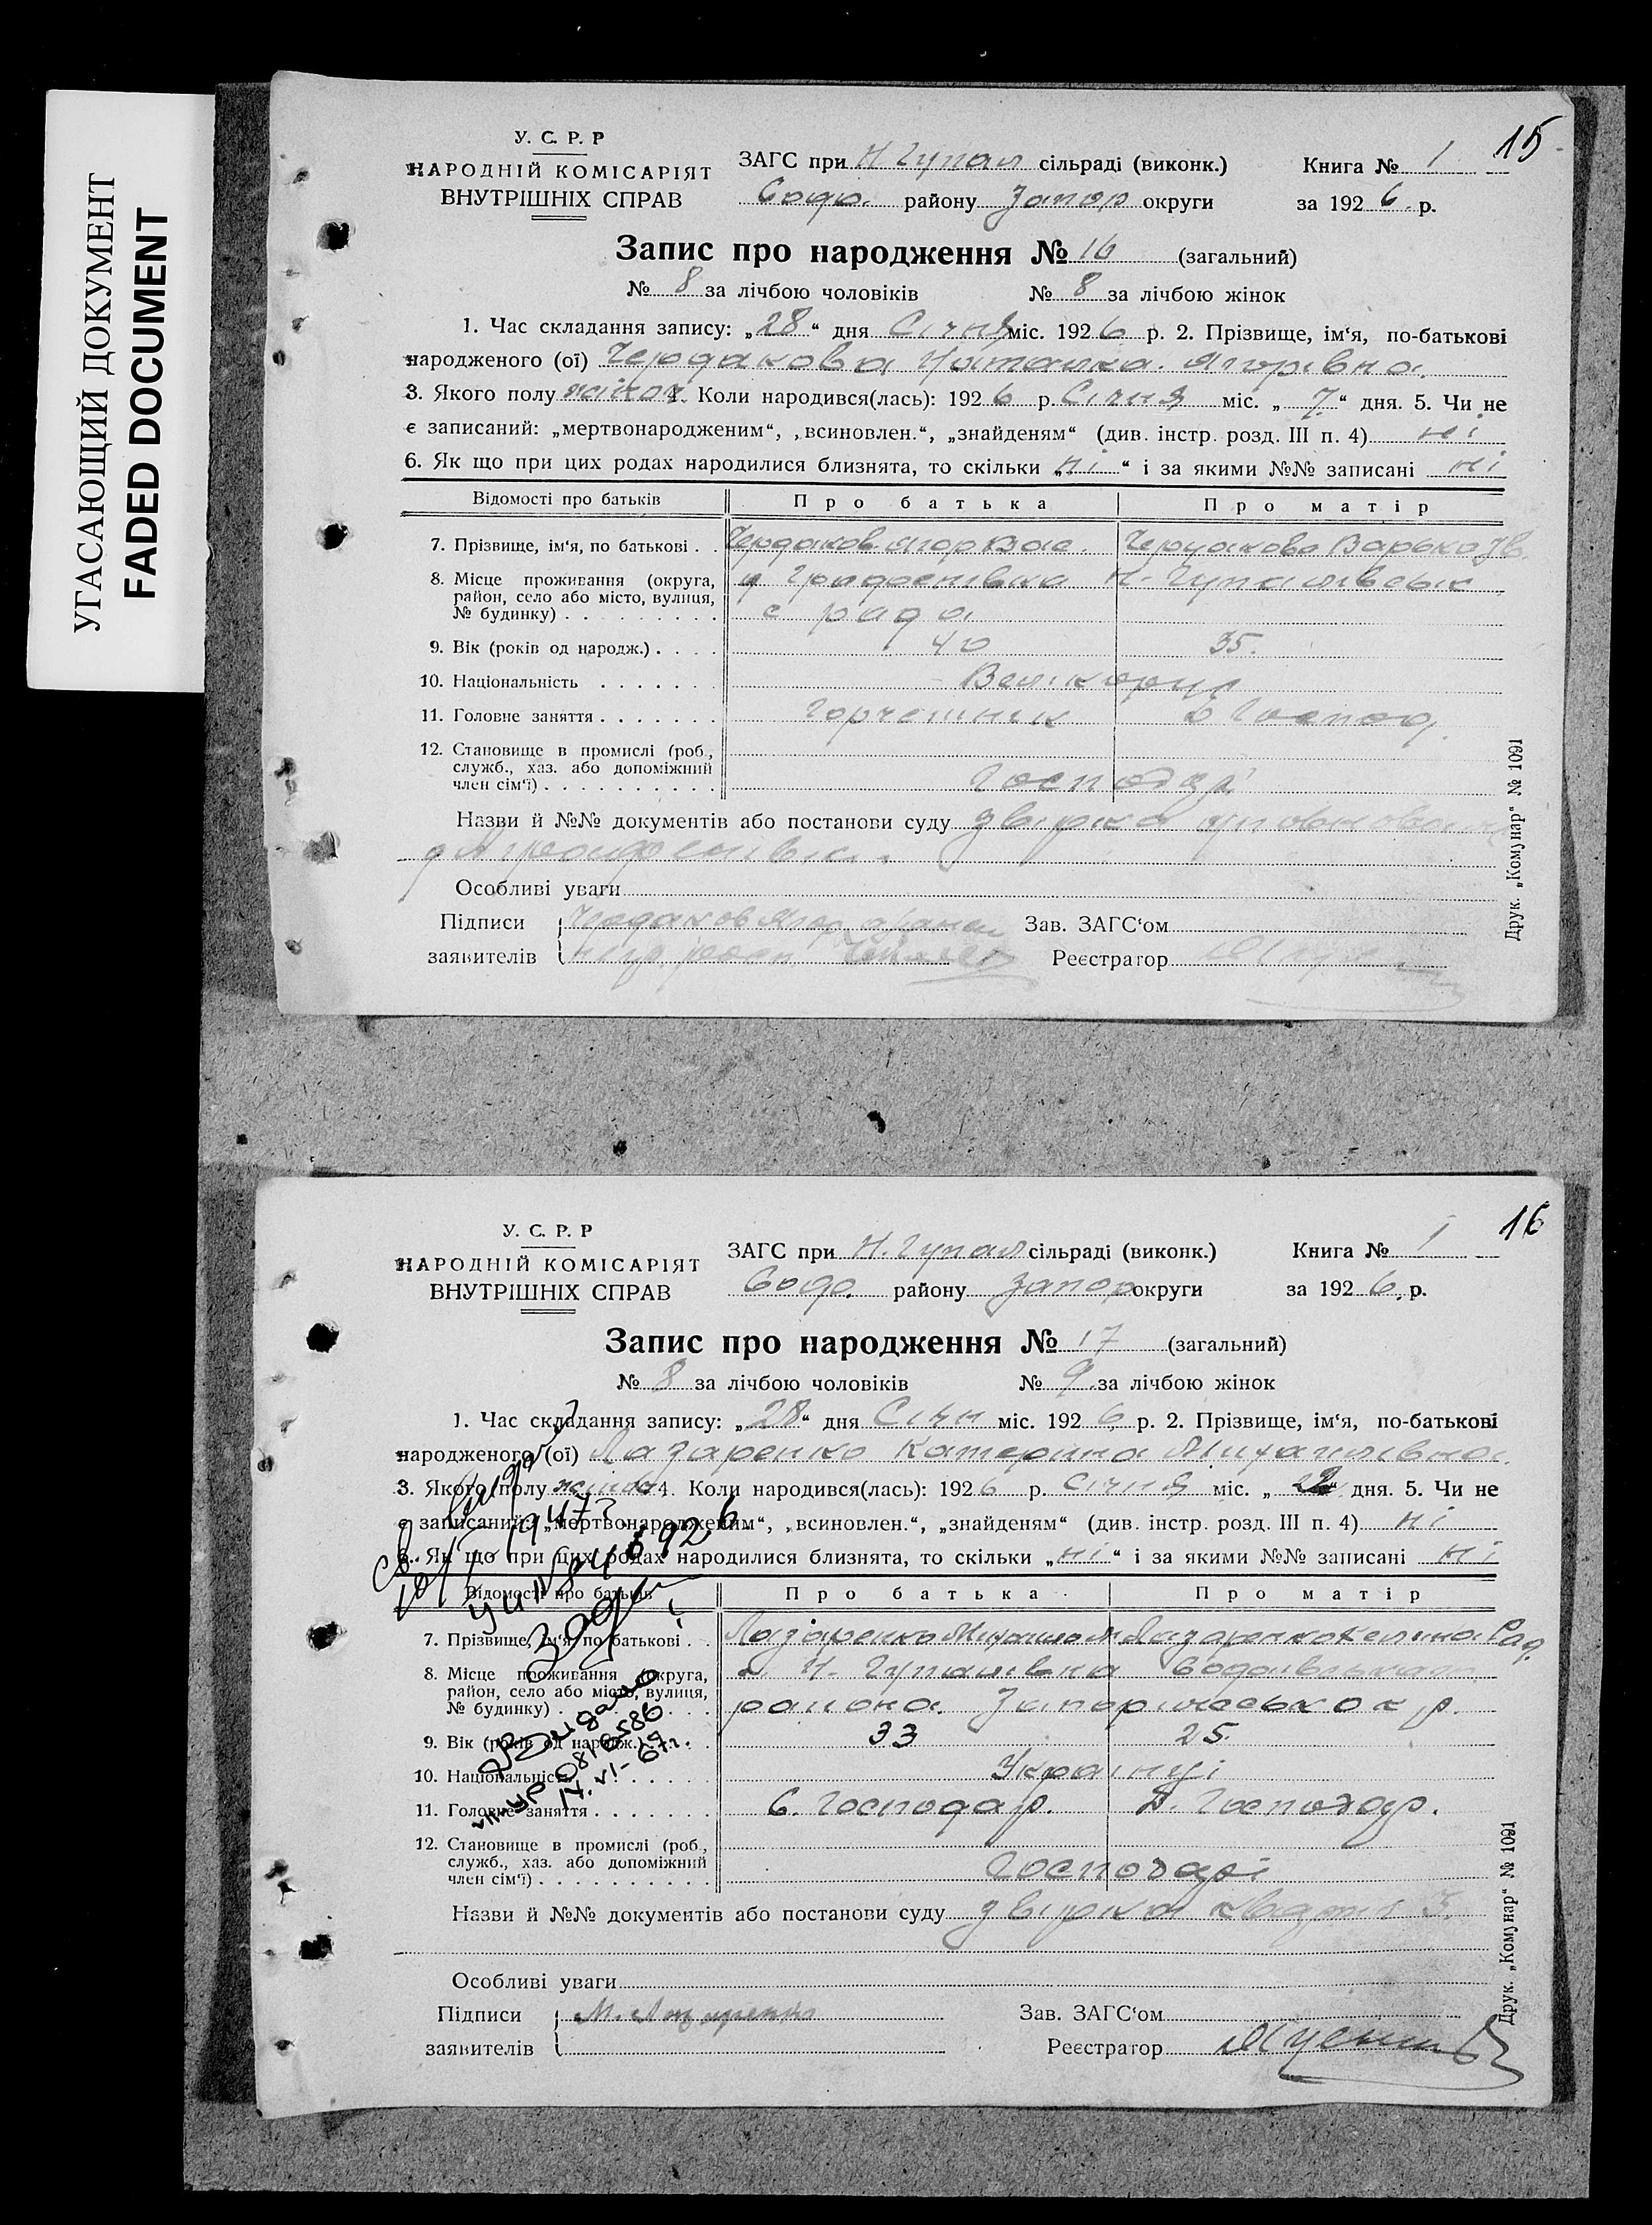 УГАСАЮЩИЙ ДОКУМЕНТ
FADED DOCUMENT
15
У. С. Р. Р
НАРОДНІЙ КОМІСАРІЯТ
ВНУТРІШНІХ СПРАВ
ЗАГС при Н. Гупал сільраді (виконк.)
Софо. району Запор округи
Книга № 1
за 1926 р.
Запис про народження № 16 (загальний)
№ 8 за лічбою чоловіків № 8 за лічбою жінок
1. Час складання запису: „28“ дня Січня міс. 1926 р. 2. Прізвище, ім‘я, по-батькові
народженого (ої) Чердакова Наталка Ягорівна
3. Якого полу жіноч. 4. Коли народився(лась): 1926 р. Січня міс. „7“ дня. 5. Чи не
є записаний: „мертвонародженим“, „всиновлен.“, „знайденям“ (див. інстр. розд. III п. 4) ні
6. Як що при цих родах народилися близнята, то скільки „ні“ і за якими №№ записані ні
Відомості про батьків Про батька Про матір
7. Прізвище, ім‘я, по батькові . . Чердаков Ягор Вас. Чердакова Варька Ів.
8. Місце проживання (округа, Н. Гупалівська
район, село або місто, вулиця,
№ будинку) . . . . . . . . . с рада
9. Вік (років од народж.) . . . . 40 35.
10. Національність . . . . . . Великорус
11. Головне заняття . . . . . . . д Господ.
12. Становище в промислі (роб.,
служб., хаз. або допоміжний
член сім‘ї) . . . . . . . . . . Господарі
Назви й №№ документів або постанови суду звірка
Особливі уваги
Підписи Чердаков Ягор
заявителів
Зав. ЗАГС‘ом
Реєстратор
Друк. „Комунар“ № 1091
16
У. С. Р. Р
НАРОДНІЙ КОМІСАРІЯТ
ВНУТРІШНІХ СПРАВ
ЗАГС при Н. Гупал сільраді (виконк.)
Софо. району Запор округи
Книга № 1
за 1926 р.
Запис про народження № 17 (загальний)
№ 8 за лічбою чоловіків № 9 за лічбою жінок
1. Час складання запису: „28“ дня Січн міс. 1926 р. 2. Прізвище, ім‘я, по-батькові
народженого (ої) Лазаренко Катерина Михайлівна
3. Якого полу жіноч 4. Коли народився(лась): 1926 р. Січня міс. „22“ дня. 5. Чи не
є записаний: „мертвонародженим“, „всиновлен.“, „знайденям“ (див. інстр. розд. III п. 4) ні
6. Як що при цих родах народилися близнята, то скільки „ні“ і за якими №№ записані ні
Відомості про батьків Про батька Про матір
7. Прізвище, ім‘я, по батькові . . Лазаренко Михайло Лазаренко Келина
8. Місце проживання (округа, Н. Гупалівка
район, село або місто, вулиця, района Запоріжської окр.
№ будинку) . . . . . . . . .
9. Вік (років од народж.) . . . . 33 25.
10. Національність . . . . . . Українці
11. Головне заняття . . . . . . . С. Господар. Д. Господар.
12. Становище в промислі (роб.,
служб., хаз. або допоміжний
член сім‘ї) . . . . . . . . . . Господарі
Назви й №№ документів або постанови суду звірка
Особливі уваги
Підписи М. Лазаренко
заявителів
Зав. ЗАГС‘ом
Реєстратор
Друк. „Комунар“ № 1091
Видано
14. VI-67г.